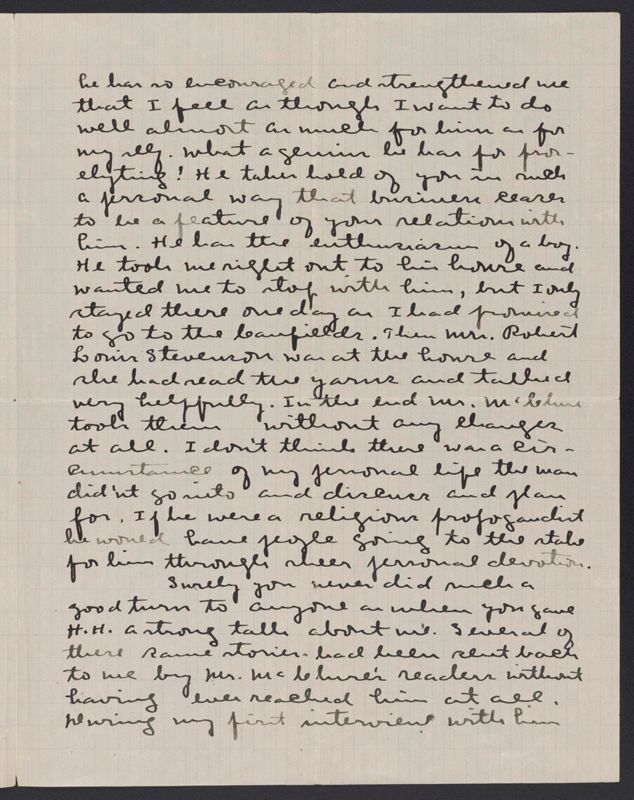 he has so encouraged and strengthened me
that I feel as though I want to do
well almost as much for him as for
my self. What a genius he has for pros-
elyting! He takes hold of you in such
a personal way that business ceases
to be a feature of your relations with
him. He has the enthusiasm of a boy.
He took me right out to his house and
wanted me to stop with him, but I only
stayed there one day as I had promised
to go to the Canfields. Then Mrs. Robert
Louis Stevenson was at the house and
she had read the yarns and talked
very helpfully. In the end Mr. McClure
took them without any changes
at all. I don't think there was a cir-
cumstance of my personal life the man
did'nt go into and discuss and plan
for. If he were a religious propogandist
he would have people going to the stake
for him through sheer personal devotion.
Surely you never did such a
good turn to anyone as when you gave
H.H. a strong talk about me. Several of
these same stories had been sent back
to me by Mr. McClure's readers without
having ever reached him at all.
During my first interview with him